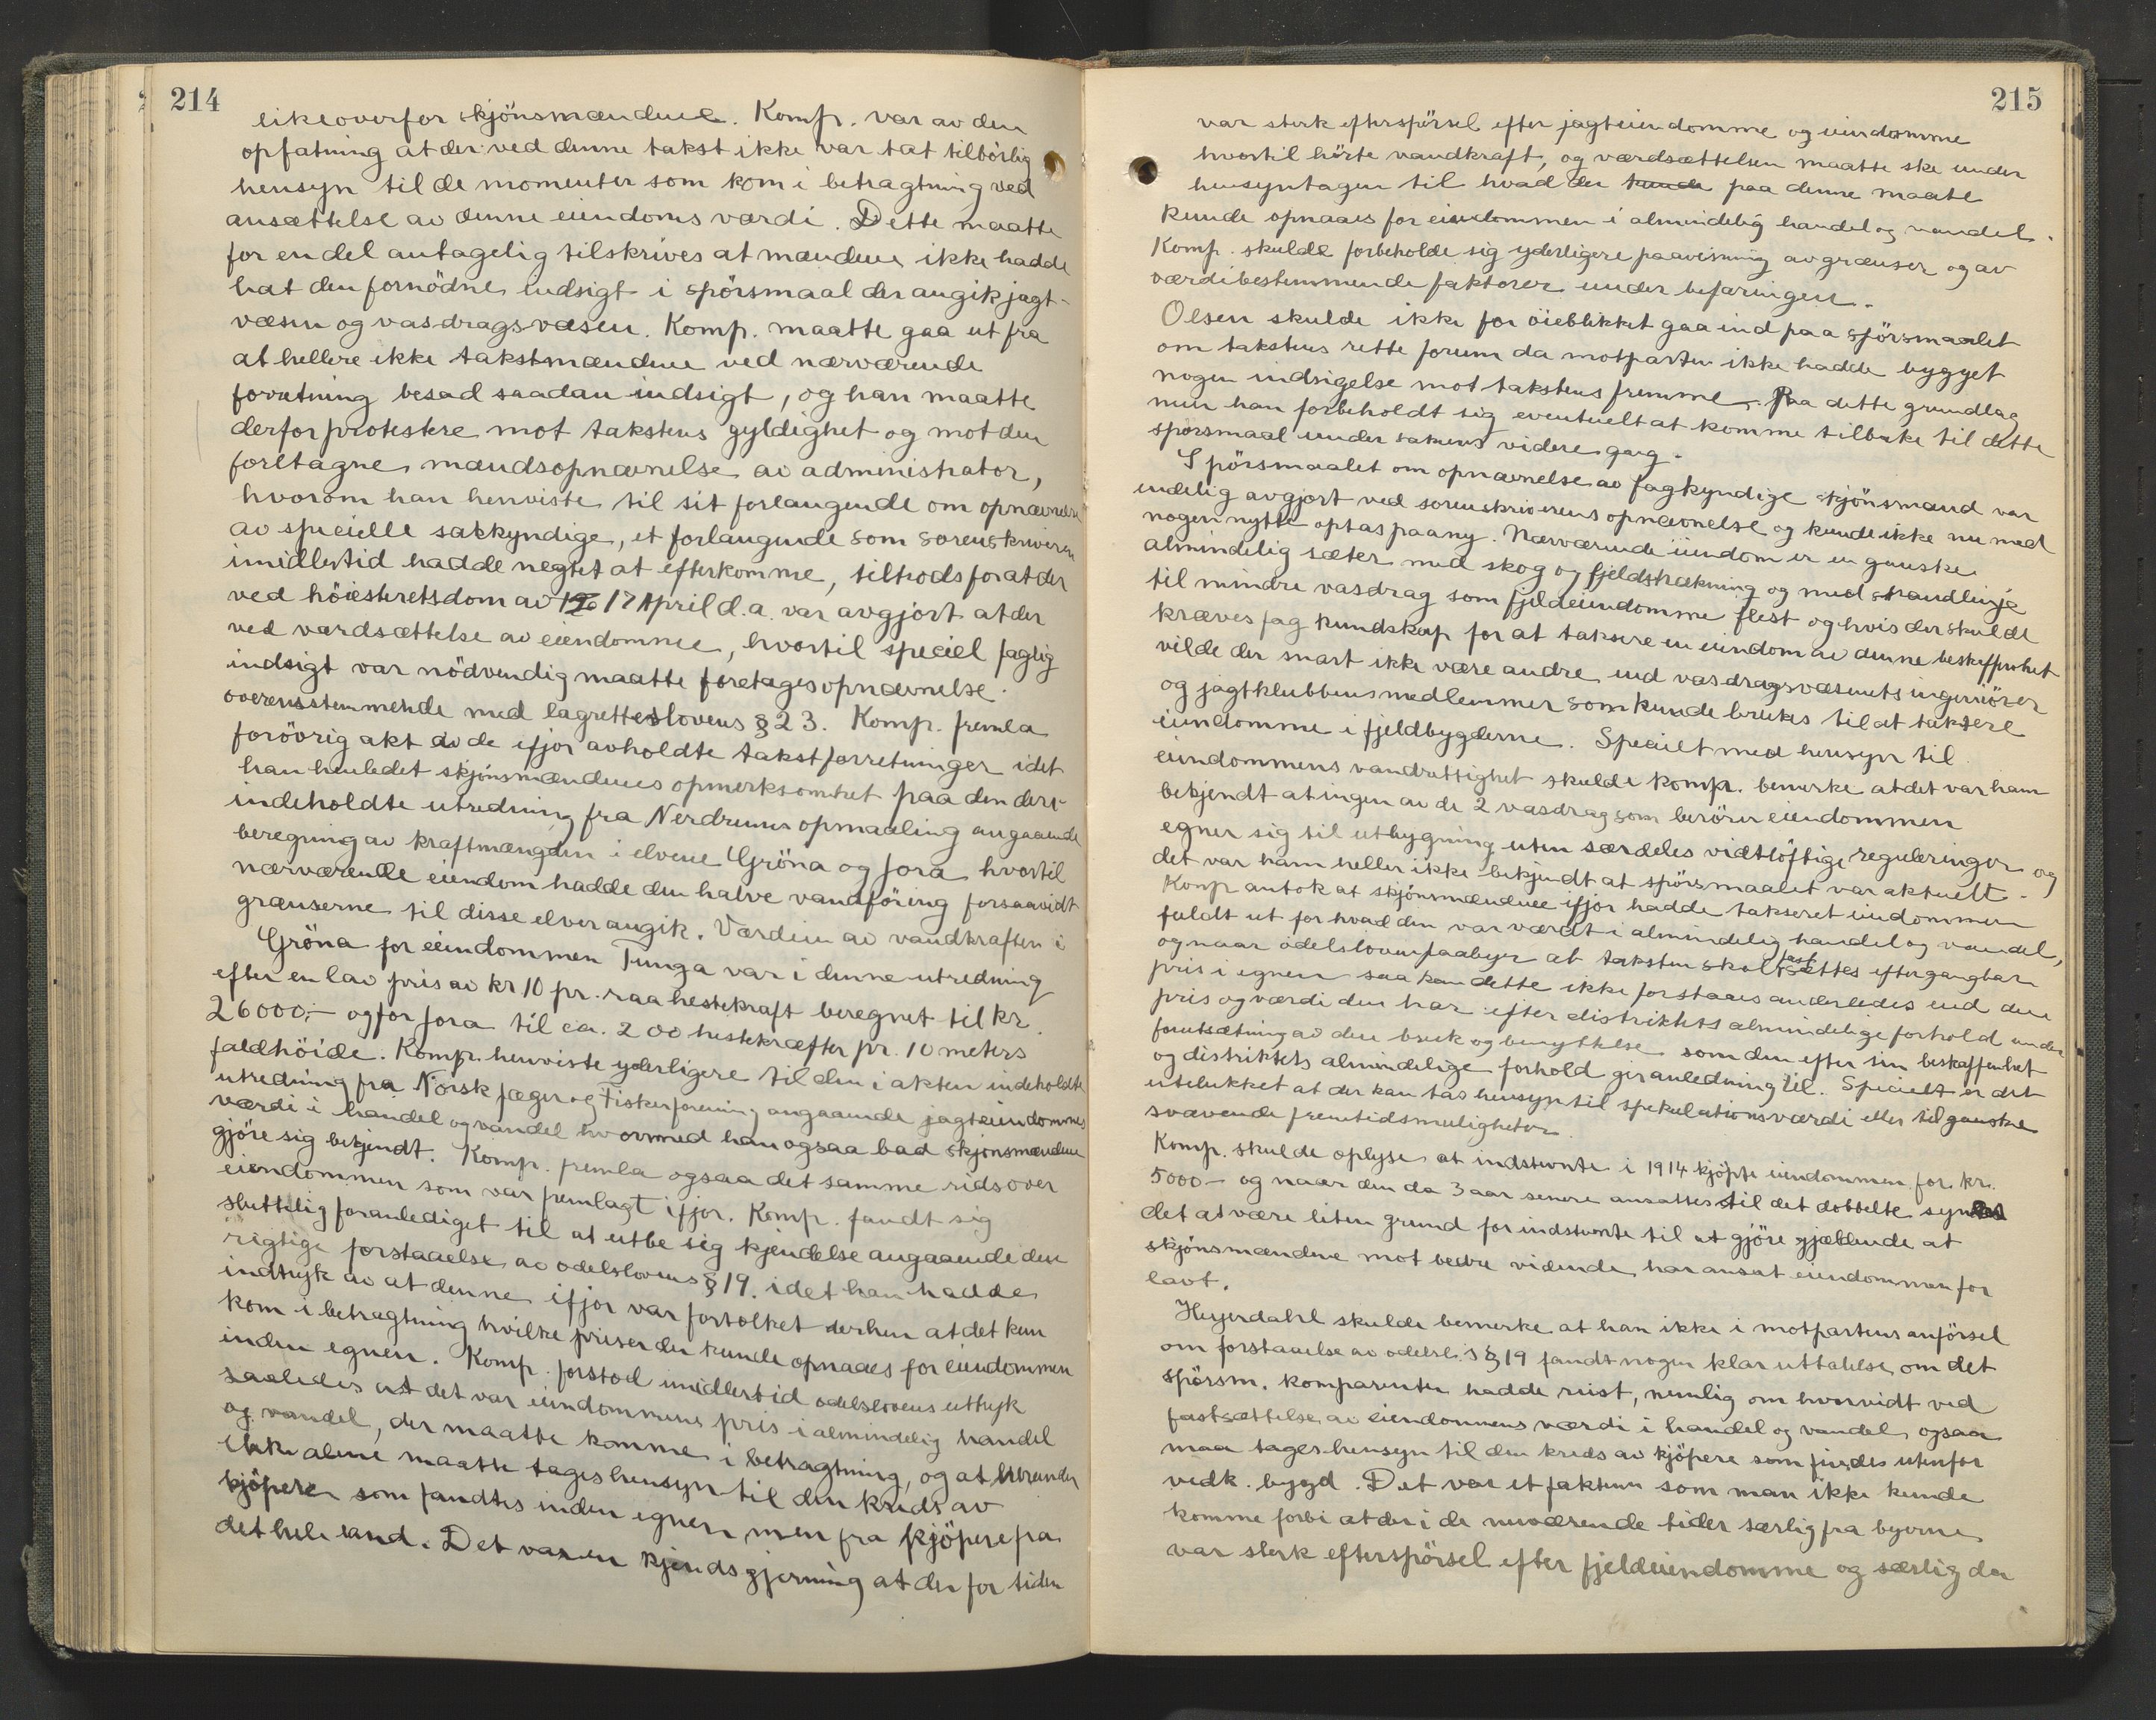 214
likeoverfor skjönsmændene. Komp. var av den
opfatning at der ved denne takst ikke var tat tilbörlig
hensyn til de momenter som kom i betragtning ved
ansættelse av denne eiendoms værdi. Dette maatte
for en del antagelig tilskrives at mændene ikke hadde
hat den fornödne indsigt i spörsmaal der angik jagt-
væsen og vasdragsvæsen. Komp. maatte gaa ut fra
at hellere ikke takstmændene ved nærværende
forretning besad saadan indsigt, og han maatte
derfor protestere mot takstens gyldighet og mot den
foretagne mandsopnævnelse av administrator,
hvorom han henviste til sit forlangende om opnævnelse
av specielle sakkyndige, et forlangende som sorenskriveren
imidlertid hadde negtet at efterkomme, tiltrods for at der
ved höiesteretsdom av 17 April d.a. var avgjort at der
ved værdsættelse av eiendomme, hvortil speciel faglig
indsigt var nödvendig maatte foretages opnævnelse
overensstemmende med lagretteslovens § 23. Komp. fremla
forövrig akt av de ifjor avholdte takstforretninger idet
han henledet skjönsmændenes opmerksomhet paa den deri
indeholdte utredning fra Nerdrums opmaaling angaaende
beregning av kraftmængden i elvene Gröna og Jora hvortil
nærværende eiendom hadde den halve vandföring forsaavidt
grænserne til disse elver angik. Værdien av vandkraften i
Gröna for eiendommen Tunga var i denne utredning
efter en lav pris av kr 10 pr. raa hestekraft beregnet til kr.
26000,- og for Jora til ca. 200 hestekræfter pr. 10 meters
faldhöide. Komp. henviste yderligere til den i akten indeholdte
utredning fra Norsk Jæger og Fiskerforening angaaende jagteiendommes
værdi i handel og vandel hvormed han ogsaa bad skjönsmændene
gjöre sig bekjendt. Komp. fremla ogsaa det samme rids over
eiendommen som var fremlagt ifjor. Komp. fandt sig
sluttelig foranlediget til at utbe sig kjendelse angaaende den
rigtige forstaaelse av odelslovens § 19. idet han hadde
indtryk av at denne ifjor var fortolket derhen at det kun
kom i betragtning hvilke priser der kunde opnaaes for eiendommen
inden egnen. Komp. forstod imidlertid odelslovens uttryk
saaledes at det var eiendommens pris i almindelig handel
og vandel, der maatte komme i betragtning, og at
ikke alene maatte tages hensyn til den kreds av
kjöpere som fandtes inden egnen men fra kjöpere fra
det hele land. Det var en kjendsgjerning at der for tiden
215
var sterk efterspörsel efter jagteiendomme og eiendomme
hvortil hörte vandkraft, og værdsættelsen maatte ske under
hensyntagen til hvad der kunde paa denne maate
kunde opnaaes for eiendommen i almindelig handel og vandel.
Komp. skulde forbeholde sig yderligere paavisning av grænser og av
værdibestemmende faktorer under befaringen.
Olsen skulde ikke for öieblikket gaa ind paa spörsmaalet
om takstens rette forum da motparten ikke hadde bygget
nogen indsigelse mot takstens fremme. Paa dette grundlag
men han forbeholdt sig eventuelt at komme tilbake til dette
spörsmaal under sakens videre gang.
Spörsmaalet om opnævnelse av fagkyndige skjönsmænd var
endelig avgjort ved sorenskriverens opnævnelse og kunde ikke nu med
nogen nytte optas paany. Nærværende eiendom er en ganske
almindelig sæter med skog og fjeldstrækning og med strandlinje
til mindre vasdrag som fjeldeiendomme flest og hvis der skulde
kræves fagkundskap for at taksere en eiendom av denne beskaffenhet
vilde der snart ikke være andre end vasdragsvæsenets ingeniörer
og jagtklubbens medlemmer som kunde brukes til at taksere
eiendomme i fjeldbygderne. Specielt med hensyn til
eiendommens vandrettighet skulde komp. bemerke at det var ham
bekjendt at ingen av de 2 vasdrag som berörer eiendommen
egner sig til utbygning uten særdeles vidtlöftige reguleringer og
det var ham heller ikke bekjendt at spörsmaalet var aktuelt.
Komp antok at skjönsmændene ifjor hadde takseret eiendommen
fuldt ut for hvad den var værdt i almindelig handel og vandel,
og naar odelsloven paabyr at taksten skal fastsættes efter gangbar
pris i egnen saa kan dette ikke forstaaes anderledes end den
pris og værdi den har efter distriktets almindelige forhold under
forutsætning av den bruk og benyttelse som den efter sin beskaffenhet
og distriktets almindelige forhold gir anledning til. Specielt er det
utelukket at der kan tas hensyn til spekulationsværdi eller til ganske
svævende fremtidsmuligheter.
Komp. skulde oplyse at indstevnte i 1914 kjöpte eiendommen for kr.
5000- og naar den da 3 aar senere ansattes til det dobbelte synes
det at være liten grund for indstevnte til at gjöre gjældende at
skjönsmændene mot bedre vidende har ansat eiendommen for
lavt.
Heyerdahl skulde bemerke at han ikke i motpartens anförsel
om forstaaelse av odelsl.s § 19 fandt nogen klar uttalelse om det
spörsm. komparenten hadde reist, nemlig om hvorvidt ved
fastsættelse av eiendommens værdi i handel og vandel ogsaa
maa tages hensyn til den kreds av kjöpere som findes utenfor
vedk. bygd. Det var et faktum som man ikke kunde
komme forbi at der i de nuværende tider særlig fra byerne
var sterk efterspörsel efter fjeldeiendomme og særlig da